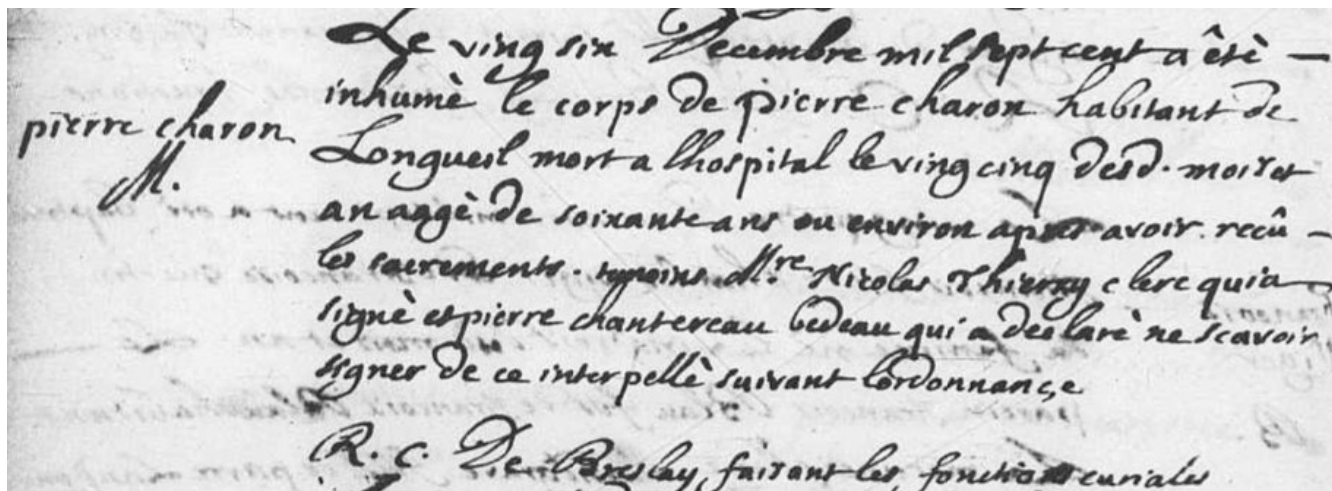 Le vingsix Decembre mil sept cent a êtè —
inhumè le corps de pierre charon habitant de
pierre charon
M.
Longueil mort a lhospital le vingcinq desd. mois et
an aggè de soixante ans ou environ apres avoir recû —
les sacrements. temoins Mre. Nicolas Thierzy clerc qui a
signè et pierre chantereau bedeau qui a declarè ne scavoir
signer de ce interpellè suivant lordonnançe
R. C. De Breslay, faisant les fonctions curiales